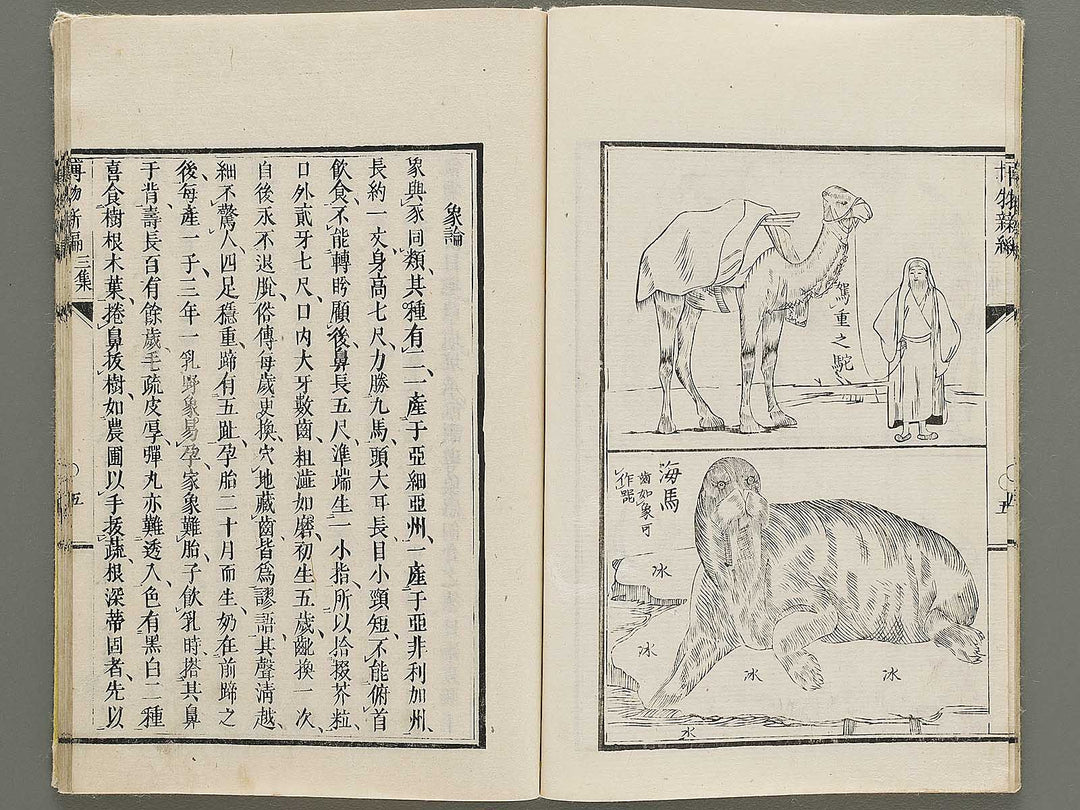 博物新編
駕重之駝
海馬
齒如象可
作器
冰
冰
冰
冰
水
象論
象與豕同類、其種有二、一產于亞細亞州、一產于亞非利加州、
長約一丈、身高七尺、力勝九馬、頭大耳長、目小頸短、不能俯首
飲食、不能轉盻顧後、鼻長五尺、準端生一小指、所以拾掇芥粒、
口外貳牙七尺、口內大牙數齒、粗澁如磨、初生五歲、齔換一次、
自後永不退脫、俗傳每歲更換、穴地藏齒、皆爲謬語、其聲淸越、
細不驚人、四足穩重、蹄有五趾、孕胎二十月而生、奶在前蹄之
後、每產一子、三年一乳、野象易孕、家象難胎、子飲乳時、搭其鼻
于背、壽長百有餘歲、毛疏皮厚、彈丸亦難透入、色有黑白二種
喜食樹根木葉、捲鼻拔樹、如農圃以手拔蔬、根深蒂固者、先以
博物新編
三集
五